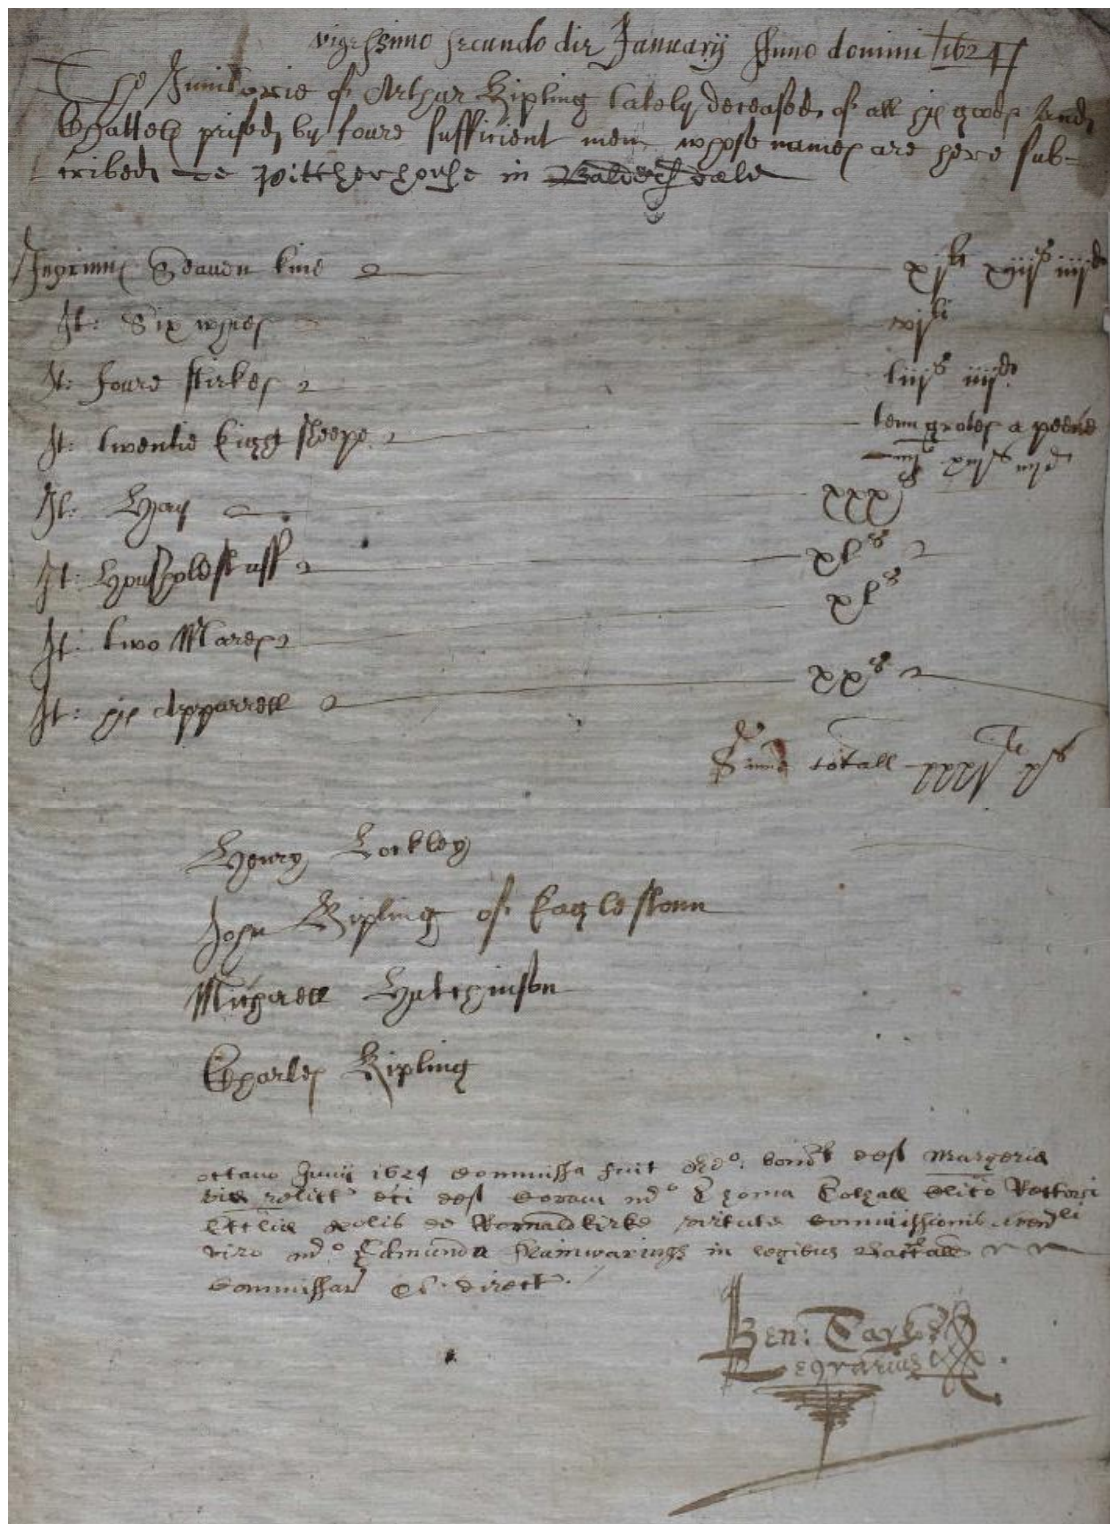 vigessimo secundo die Januarij Anno domini 1624
The Inuitorie of Arthur Kipling lately deceased of all his goods And
Chattels prised by foure sufficient men whose names are here sub-
cribed de Pittherhouse in Balders dale
Inprimis Seauen kine xjli xiijs iiijd
It: Six whies xijli
It: foure stirkes liijs iiijd
It: twentie Eight sheepe tenn grotes a peece
iiijli xiijs iiijd
It: Hay xxxs
It: Housholdstuff xls
It: two Mares xls
It: his Apparrell xxs
Summa totall xs
Henry Lockley
John Kipling of Eaglestonn
Michaell Hutchinson
Charles Kipling
octavo Junij 1624 commissa fuit bonorum def Margerie
relict def coram Thoma clico Rectori
Ecclie de Romaldkirke virtute commissionis
viro Edmundo Mainwaringe in legibus
commissar direct
Ben:
Regrarius